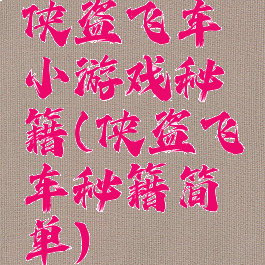 侠盗飞车
小游戏秘
籍(侠盗飞
车秘籍简
单)